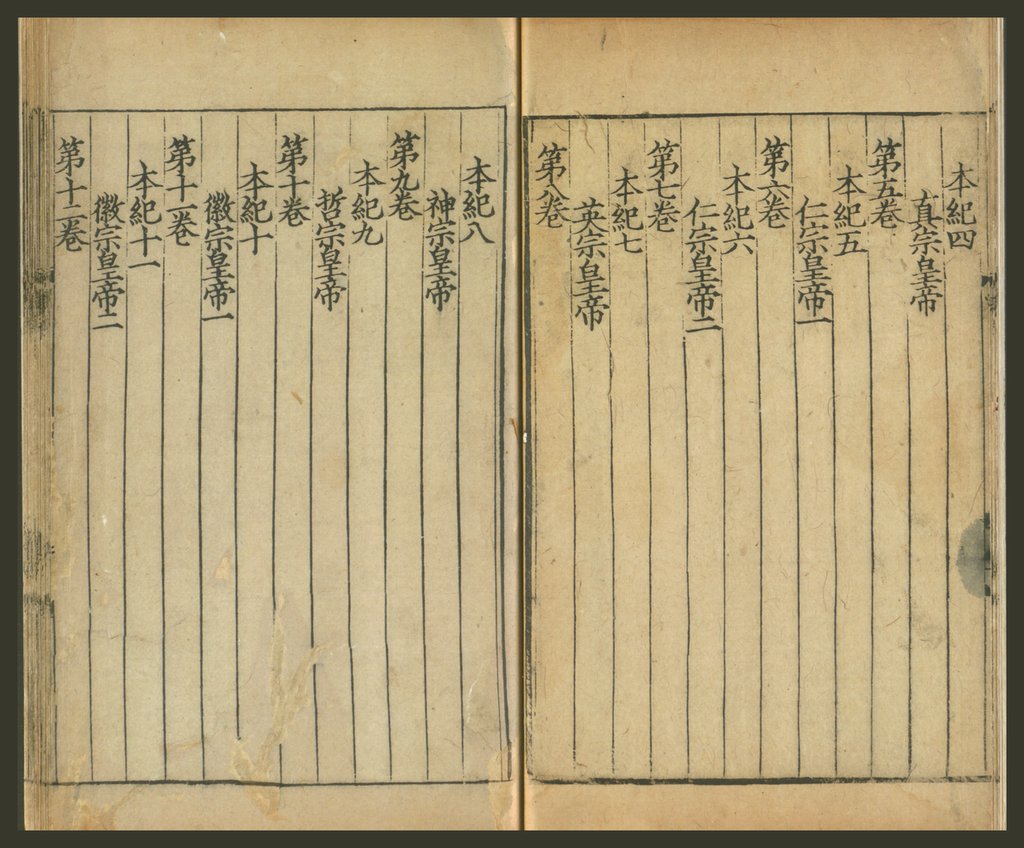 本紀四
真宗皇帝
第五卷
本紀五
仁宗皇帝一
第六卷
本紀六
仁宗皇帝二
第七卷
本紀七
英宗皇帝
第八卷
本紀八
神宗皇帝
第九卷
本紀九
哲宗皇帝
第十卷
本紀十
徽宗皇帝一
第十一卷
本紀十一
徽宗皇帝二
第十二卷